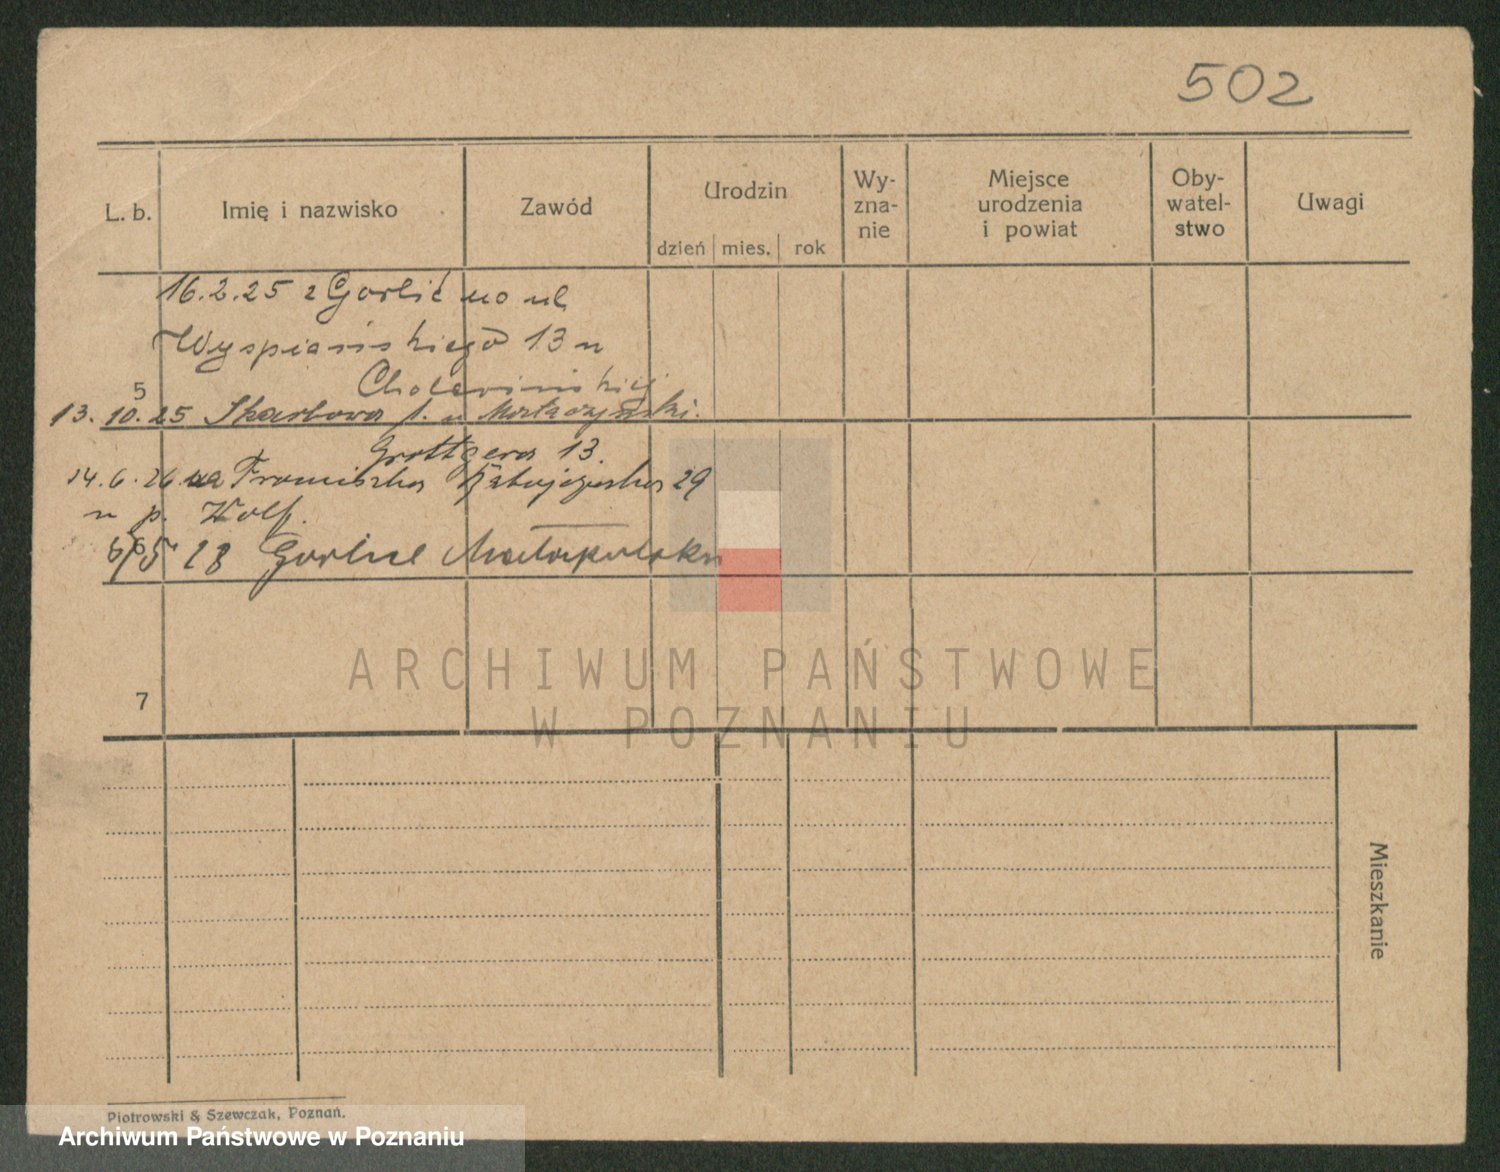 502
L. b.
Imię i nazwisko
Zawód
Urodzin
dzień mies. rok
Wy-
zna-
nie
Miejsce
urodzenia
i powiat
Oby-
watel-
stwo
Uwagi
16.2.25 z Gorlic na ul
Wyspiańskiego 13 u
5
13.10.25 Skarbowa
Grottgera 13.
14.6.26 na Franciszka Ratajczaka 29
u p. Wolf.
6
6/5 28 Gorlice Małopolska
7
ARCHIWUM PAŃSTWOWE
W POZNANIU
Mieszkanie
Piotrowski & Szewczak, Poznań.
Archiwum Państwowe w Poznaniu